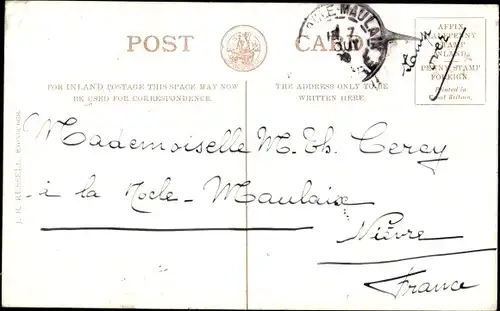 POST CARD
LA NOCLE-MAULAIX
AFFIX
HALFPENNY
STAMP
INLAND.
PENNY STAMP
FOREIGN.
Printed in
Great Britain.
FOR INLAND POSTAGE THIS SPACE MAY NOW
BE USED FOR CORRESPONDENCE.
THE ADDRESS ONLY TO BE
WRITTEN HERE.
Mademoiselle M. Th. Cercy
à la Nocle-Maulaix
Nièvre
France